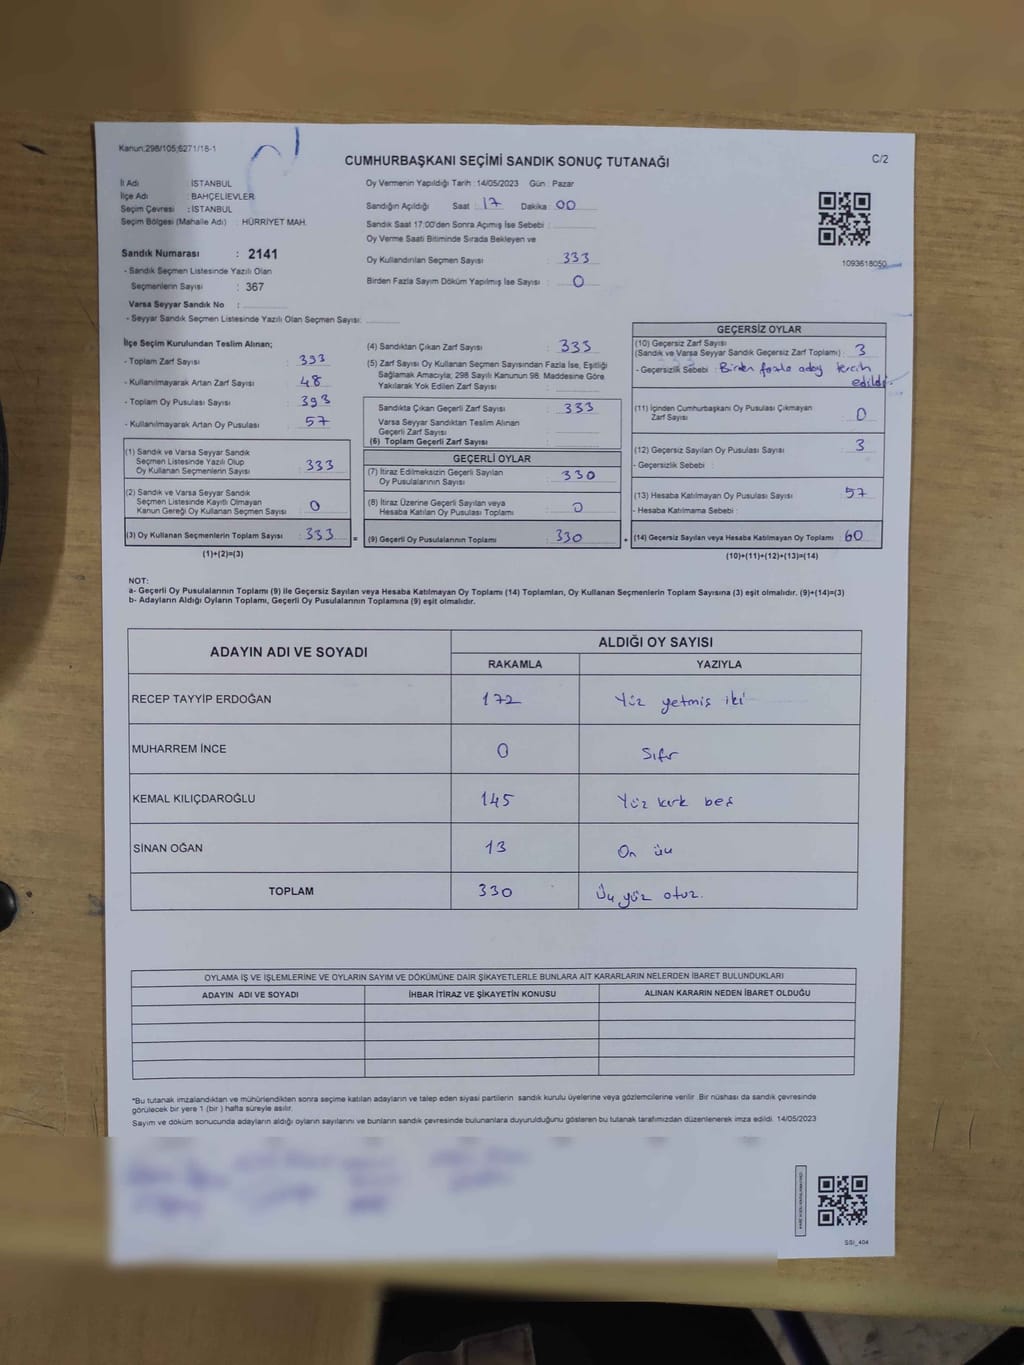 Kanun:298/105;6271/18-1
CUMHURBAŞKANI SEÇİMİ SANDIK SONUÇ TUTANAĞI
C/2
İl Adı : İSTANBUL
İlçe Adı : BAHÇELİEVLER
Seçim Çevresi : İSTANBUL
Seçim Bölgesi (Mahalle Adı) : HÜRRİYET MAH.
Sandık Numarası : 2141
- Sandık Seçmen Listesinde Yazılı Olan
Seçmenlerin Sayısı : 367
Varsa Seyyar Sandık No :
- Seyyar Sandık Seçmen Listesinde Yazılı Olan Seçmen Sayısı:
Oy Vermenin Yapıldığı Tarih : 14/05/2023 Gün : Pazar
Sandığın Açıldığı Saat : 17 Dakika : 00
Sandık Saat 17:00'den Sonra Açımış İse Sebebi :
Oy Verme Saati Bitiminde Sırada Bekleyen ve
Oy Kullandırılan Seçmen Sayısı : 333
Birden Fazla Sayım Döküm Yapılmış İse Sayısı : 0
1093618050
İlçe Seçim Kurulundan Teslim Alınan;
- Toplam Zarf Sayısı : 393
- Kullanılmayarak Artan Zarf Sayısı : 48
- Toplam Oy Pusulası Sayısı : 393
- Kullanılmayarak Artan Oy Pusulası : 57
(1) Sandık ve Varsa Seyyar Sandık
Seçmen Listesinde Yazılı Olup
Oy Kullanan Seçmenlerin Sayısı : 333
(2) Sandık ve Varsa Seyyar Sandık
Seçmen Listesinde Kayıtlı Olmayan
Kanun Gereği Oy Kullanan Seçmen Sayısı : 0
(3) Oy Kullanan Seçmenlerin Toplam Sayısı : 333
(1)+(2)=(3)
(4) Sandıktan Çıkan Zarf Sayısı : 333
(5) Zarf Sayısı Oy Kullanan Seçmen Sayısından Fazla İse, Eşitliği
Sağlamak Amacıyla; 298 Sayılı Kanunun 98. Maddesine Göre
Yakılarak Yok Edilen Zarf Sayısı :
Sandıkta Çıkan Geçerli Zarf Sayısı : 333
Varsa Seyyar Sandıktan Teslim Alınan
Geçerli Zarf Sayısı :
(6) Toplam Geçerli Zarf Sayısı :
GEÇERLİ OYLAR
(7) İtiraz Edilmeksizin Geçerli Sayılan
Oy Pusulalarının Sayısı : 330
(8) İtiraz Üzerine Geçerli Sayılan veya
Hesaba Katılan Oy Pusulası Toplamı : 0
(9) Geçerli Oy Pusulalarının Toplamı : 330
GEÇERSİZ OYLAR
(10) Geçersiz Zarf Sayısı
(Sandık ve Varsa Seyyar Sandık Geçersiz Zarf Toplamı) : 3
- Geçersizlik Sebebi : Birden fazla aday tercih
edildi
(11) İçinden Cumhurbaşkanı Oy Pusulası Çıkmayan
Zarf Sayısı : 0
(12) Geçersiz Sayılan Oy Pusulası Sayısı : 3
- Geçersizlik Sebebi :
(13) Hesaba Katılmayan Oy Pusulası Sayısı : 57
- Hesaba Katılmama Sebebi :
(14) Geçersiz Sayılan veya Hesaba Katılmayan Oy Toplamı : 60
(10)+(11)+(12)+(13)=(14)
NOT:
a- Geçerli Oy Pusulalarının Toplamı (9) ile Geçersiz Sayılan veya Hesaba Katılmayan Oy Toplamı (14) Toplamları, Oy Kullanan Seçmenlerin Toplam Sayısına (3) eşit olmalıdır. (9)+(14)=(3)
b- Adayların Aldığı Oyların Toplamı, Geçerli Oy Pusulalarının Toplamına (9) eşit olmalıdır.
ADAYIN ADI VE SOYADI ALDIĞI OY SAYISI
RAKAMLA YAZIYLA
RECEP TAYYİP ERDOĞAN 172 Yüz yetmiş iki
MUHARREM İNCE 0 Sıfır
KEMAL KILIÇDAROĞLU 145 Yüz kırk beş
SİNAN OĞAN 13 On üç
TOPLAM 330 Üç yüz otuz.
OYLAMA İŞ VE İŞLEMLERİNE VE OYLARIN SAYIM VE DÖKÜMÜNE DAİR ŞİKAYETLERLE BUNLARA AİT KARARLARIN NELERDEN İBARET BULUNDUKLARI
ADAYIN ADI VE SOYADI İHBAR İTİRAZ VE ŞİKAYETİN KONUSU ALINAN KARARIN NEDEN İBARET OLDUĞU
*Bu tutanak imzalandıktan ve mühürlendikten sonra seçime katılan adayların ve talep eden siyasi partilerin sandık kurulu üyelerine veya gözlemcilerine verilir. Bir nüshası da sandık çevresinde
görülecek bir yere 1 (bir ) hafta süreyle asılır.
Sayım ve döküm sonucunda adayların aldığı oyların sayılarını ve bunların sandık çevresinde bulunanlara duyurulduğunu gösteren bu tutanak tarafımızdan düzenlenerek imza edildi. 14/05/2023
SSI_404